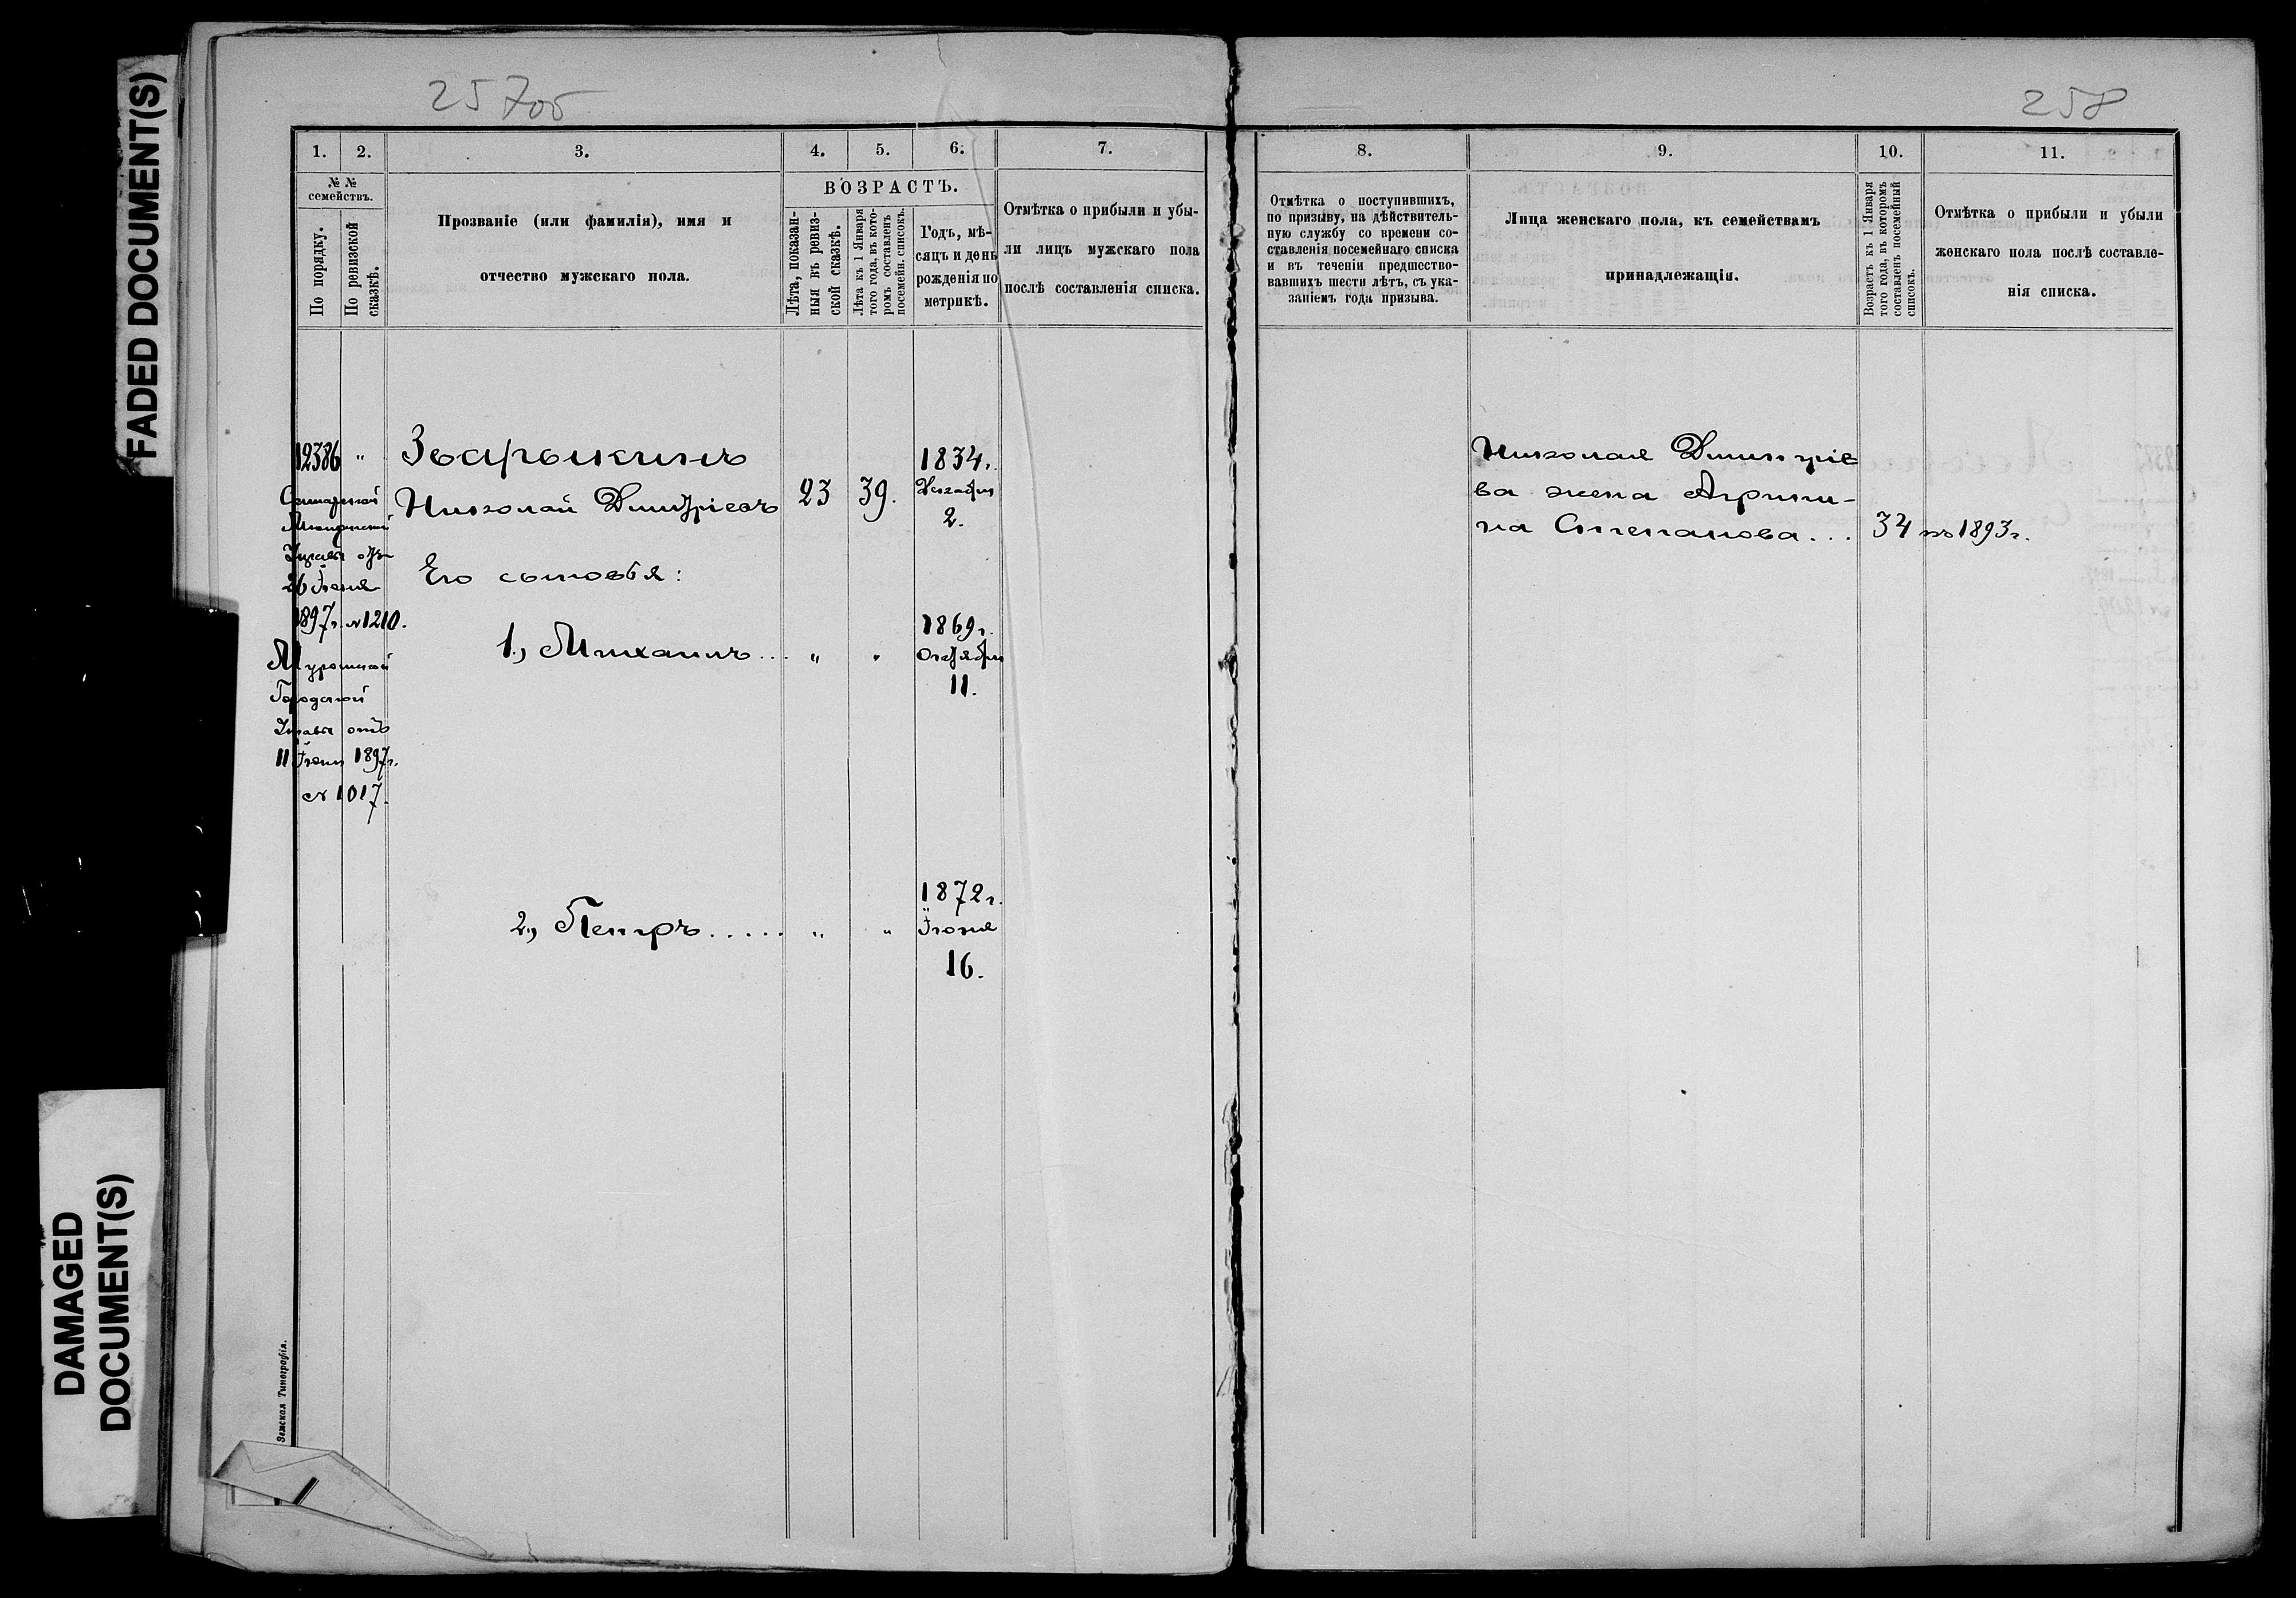 FADED DOCUMENT(S)
DAMAGED
DOCUMENT(S)
257об
258
1. 2. 3. 4. 5. 6. 7.
№ №
семействъ.
По порядку.
По ревизской
сказкѣ.
Прозваніе (или фамилія), имя и
отчество мужскаго пола.
ВОЗРАСТЪ.
Лѣта, показан-
ныя въ ревиз-
ской сказкѣ.
Лѣта къ 1 Января
того года, въ кото-
ромъ составленъ
посемейн. списокъ.
Годъ, мѣ-
сяцъ и день
рожденія по
метрикѣ.
Отмѣтка о прибыли и убы-
ли лицъ мужскаго пола
послѣ составленія списка.
12386 "
Самарской
Мѣщанской
Управы отъ
26 Іюня
1897 г. № 1210.
Городской
Управы отъ
11 Іюня 1897 г.
№ 1017.
Николай Дмитріевъ 23 39.
1834 г.
Декабря
2.
Его сыновья:
1., Михаилъ... " "
1869 г.
Октября
11.
2., Петръ..... " "
1872 г.
Іюня
16.
Земская Типографія.
8. 9. 10. 11.
Отмѣтка о поступившихъ,
по призыву, на дѣйствитель-
ную службу со времени со-
ставленія посемейнаго списка
и въ теченіи предшество-
вавшихъ шести лѣтъ, съ ука-
заніемъ года призыва.
Лица женскаго пола, къ семействамъ
принадлежащія.
Возрастъ къ 1 Января
того года, въ которомъ
составленъ посемейный
списокъ.
Отмѣтка о прибыли и убыли
женскаго пола послѣ составле-
нія списка.
Николая Дмитріе
ва жена Агрипи-
на Степанова... 34 въ 1893 г.